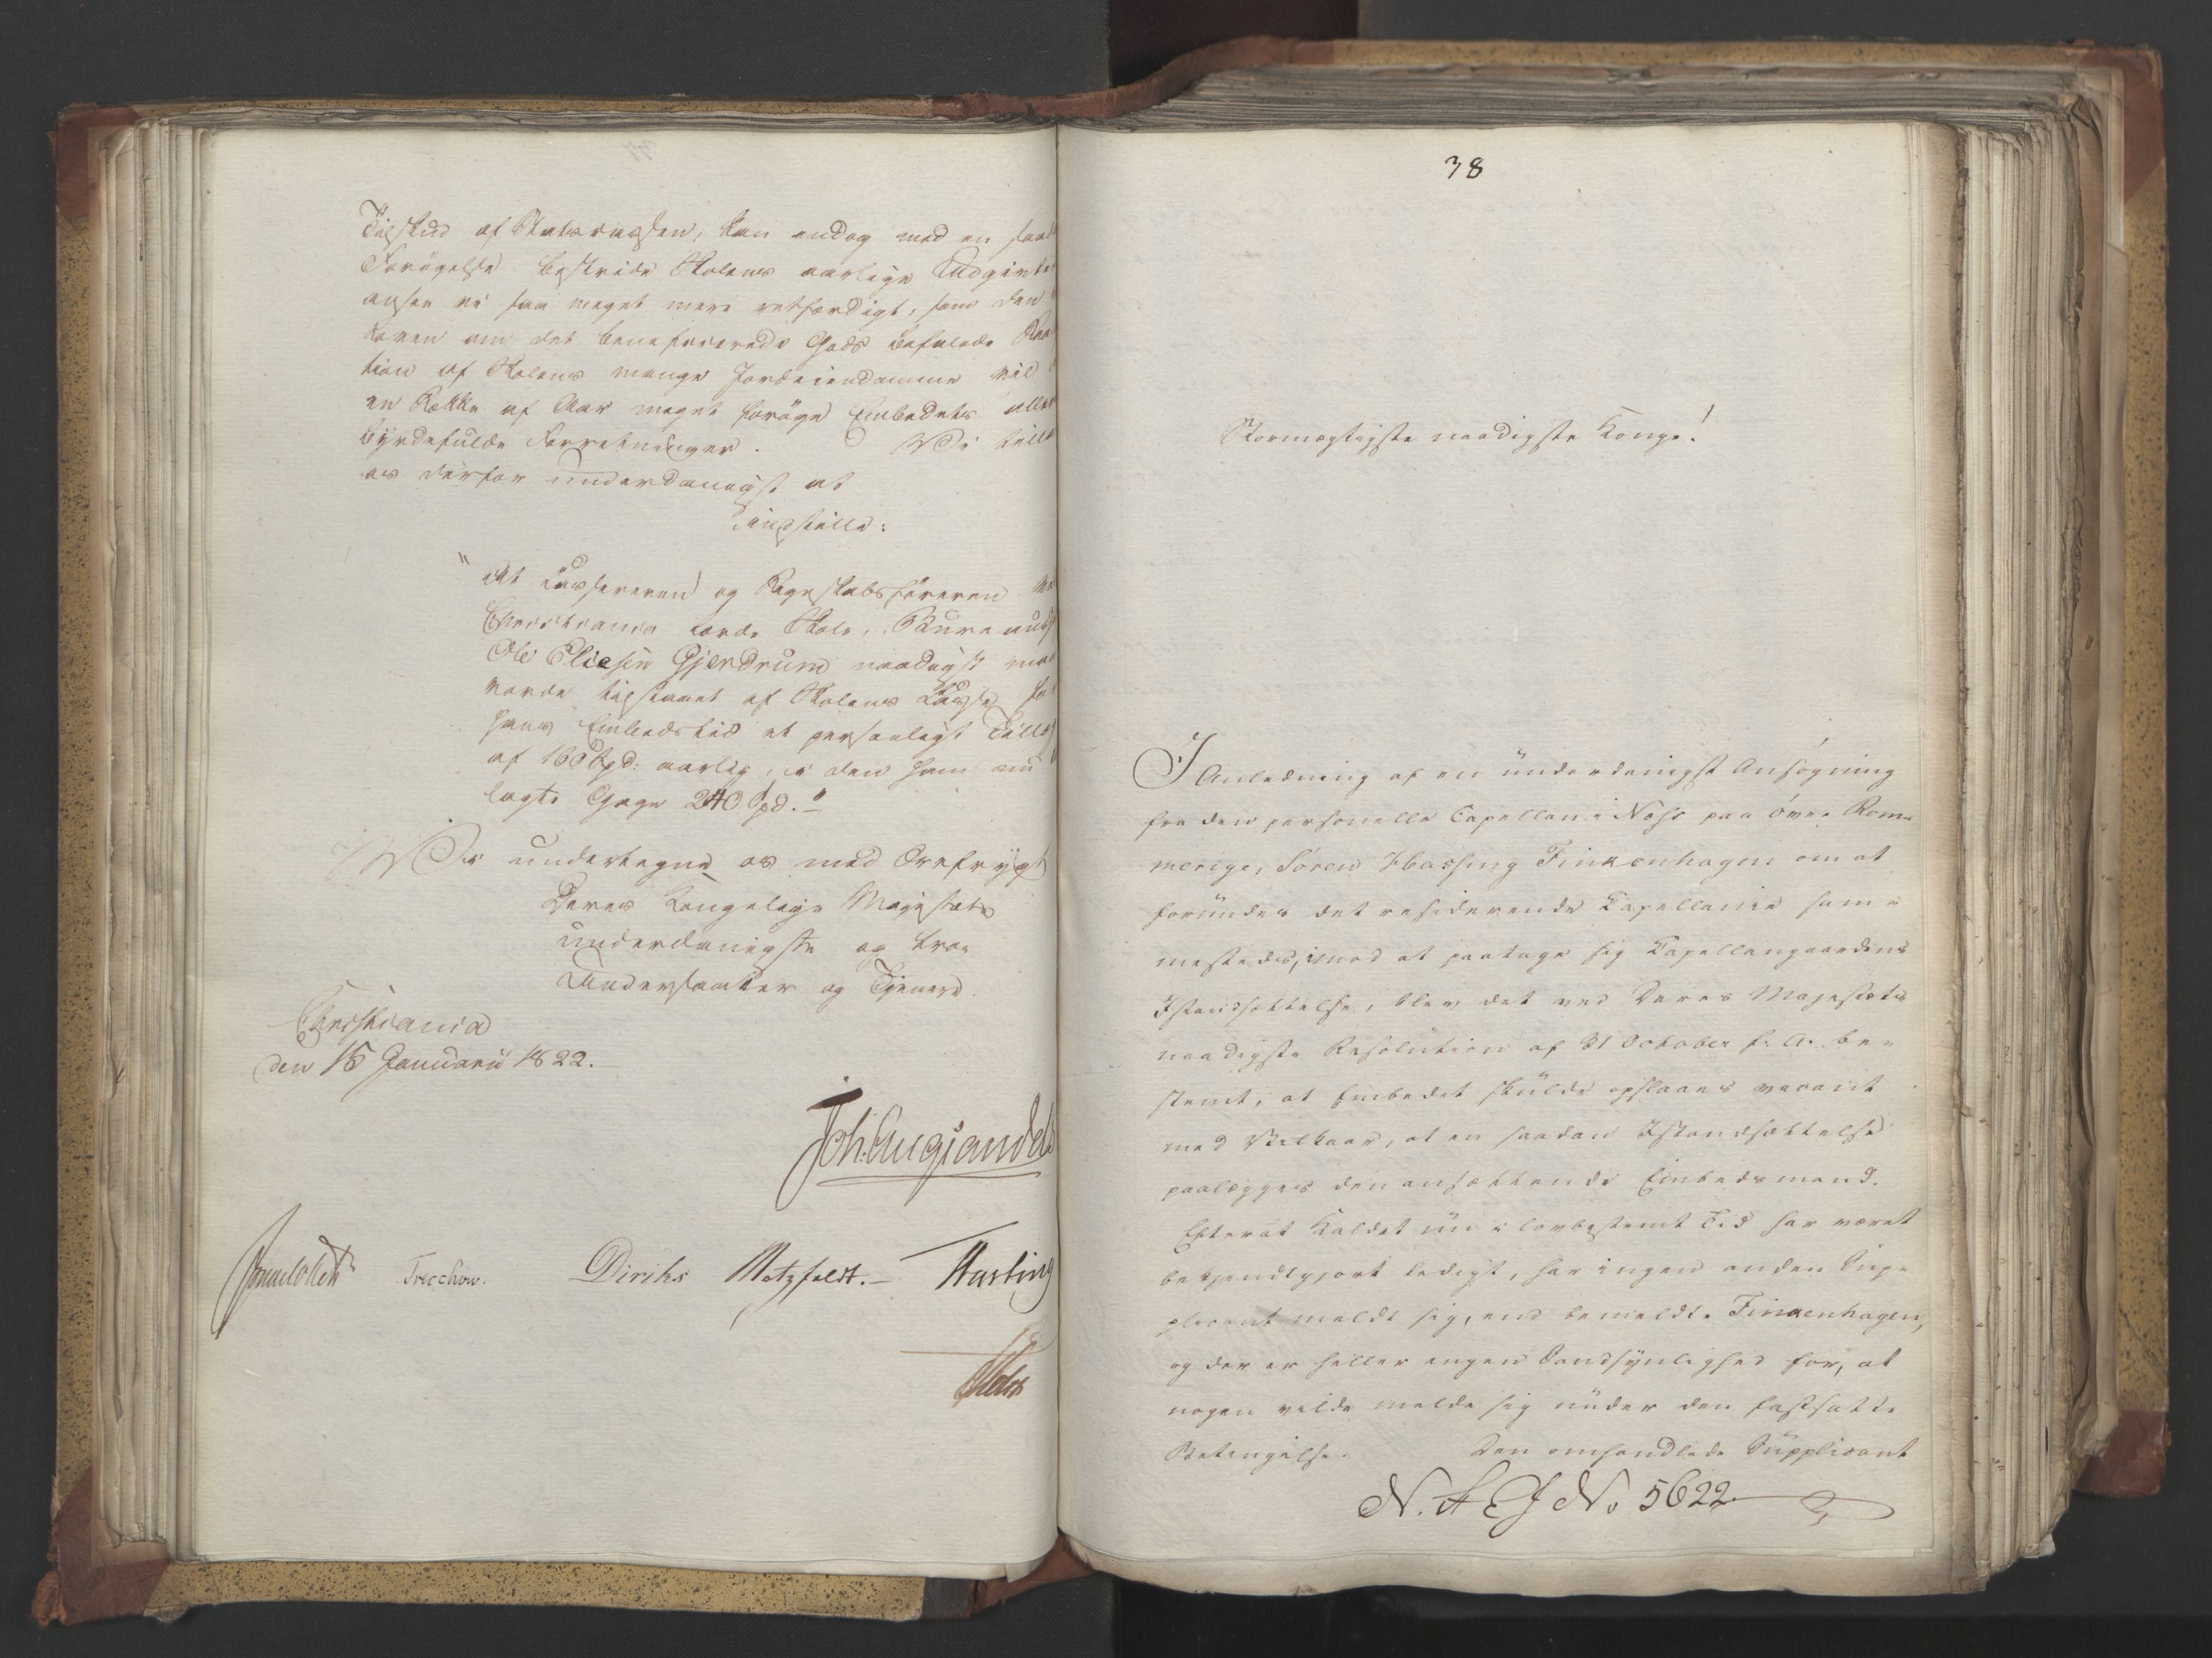 Tilskud af Statscassen, kan endog med en saad
Forøgelse bestride Skolens aarlige Udgivter
ansee vi saa meget mere retfærdigt, som den
Loven om det beneficerede Gods befalede
tion af Skolens mange Jordeiendomme vil
en Række af Aar meget forøge Embedets aller
byrdefulde Forretninger. Vi
os derfor underdanigst at
indstille:
"At Kassereren og Regnskabsføreren ved
Christiania lærde Skole,
Ole Eliesen Gjerdrum naadigst maa
vorde tilstaaet af Skolens Kasse for
hans Embedstid et personligt Tillæg
af 160 Spd: aarlig, til den ham nu
lagte Gage 240 Spd."
Vi undertegne os med Ærefrygt
Deres Kongelige Majestæts
underdanigste og troe
Undersaatter og Tjenere.
Christiania
den 15 Januarii 1822.
Joh. Aug. Sandels
Sommerhielm Treschow. Diriks Motzfeldt.
38
Stormægtigste naadigste Konge!
I Anledning af en underdanigst Ansøgning
fra den personelle Capellan i Næss paa øvre Rom=
merige, Søren Hassing Finkenhagen om at
forundes det residerende Capellanie sam=
mestedes, imod at paatage sig Capellangaardens
Istandsættelse, blev det ved Deres Majestæts
naadigste Resolution af 31 October f. A. be=
stemt, at Embedet skulde opslaaes vacant
med Vilkaar, at en saadan Istandsættelse
paalægges den ansættende Embedsmand.
Efterat Kaldet nu i lovbestemt Tid har været
bekjendtgjort ledigt, har ingen anden Sup=
plicant meldt sig, end bemeldte Finkenhagen,
og der er heller ingen Sandsynlighed for, at
nogen vilde melde sig under den fastsatte
Betingelse. Den omhandlede Supplicant
N. A E J No 5622